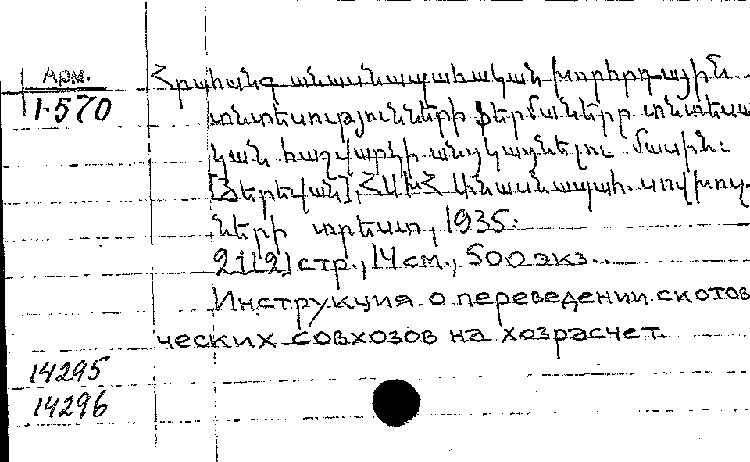 Арм.
1-570
Հրահանգ անասնապահական խորհրդային
տնտեսությունների ֆերմաները տնտես
կան հաշվարկի անցկացնելու մասին:
[Յերեվան], ՀՍԽՀ Անասնապահ. սովխոզ-
ների տրեստ, 1935.
21[2] стр., 14 см., 500 экз.
Инструкция о переведении скотов
ческих совхозов на хозрасчет.
14295
14296